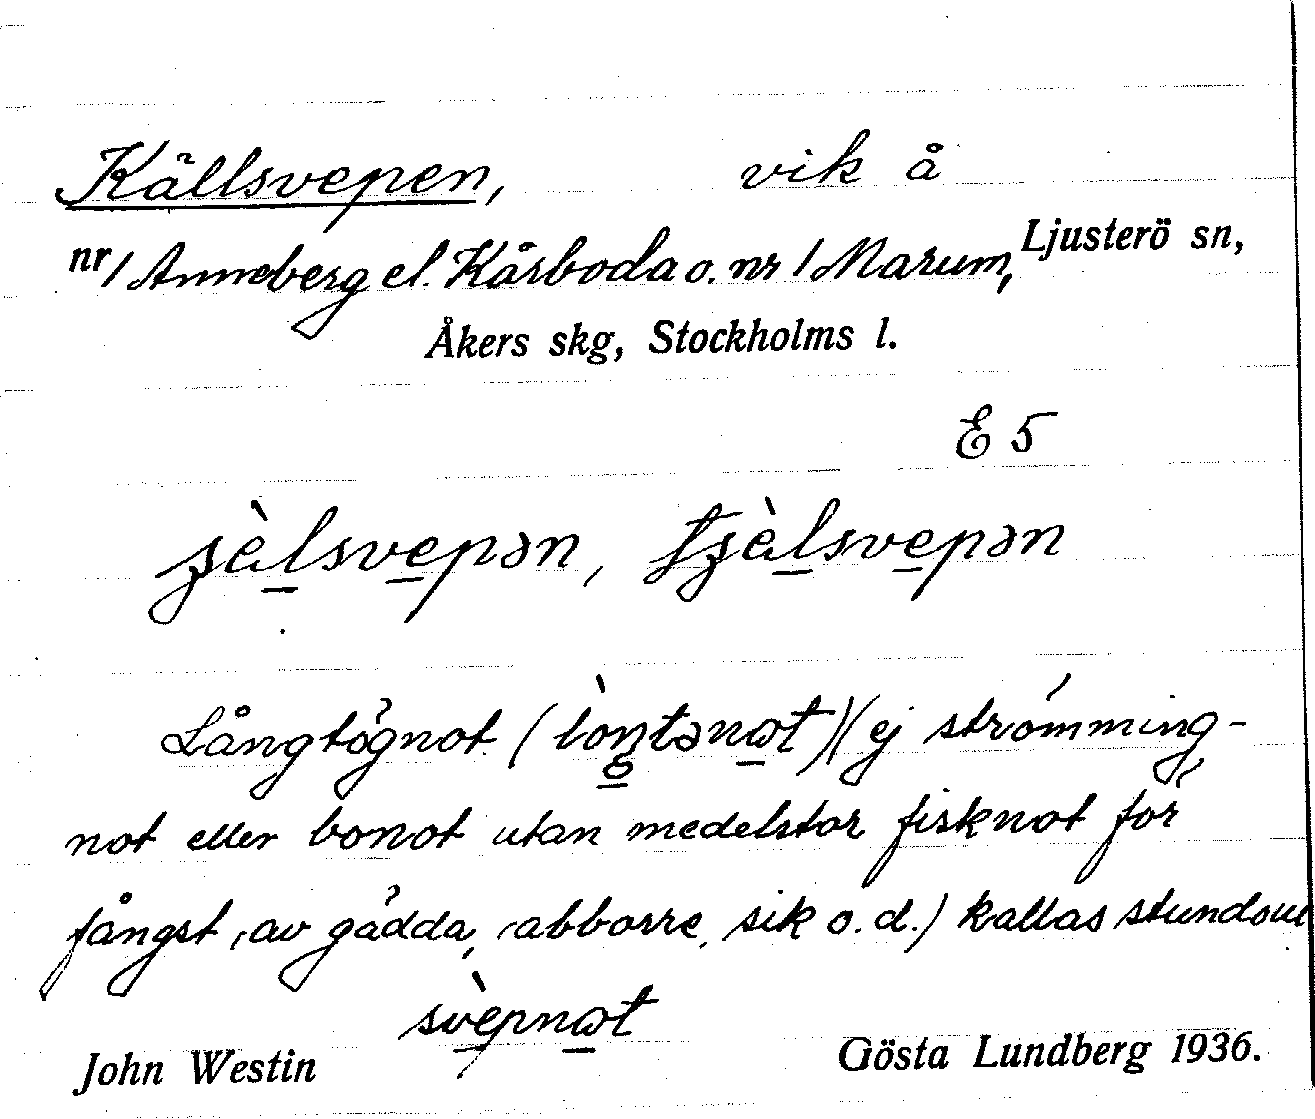 Källsvepen, vik å
nr 1 Anneberg el. Kårboda o. nr 1 Marum, Ljusterö sn,
Åkers skg, Stockholms l.
E 5
ʒὲlsvepən, tʒὲlsvepən
Långtögnot (lòŋtənɷt) (ej strömming-
not eller bonot utan medelstor fisknot för
fångst av gädda, abborre, sik o.d.) kallas stundom
svèpnɷt
John Westin Gösta Lundberg 1936.